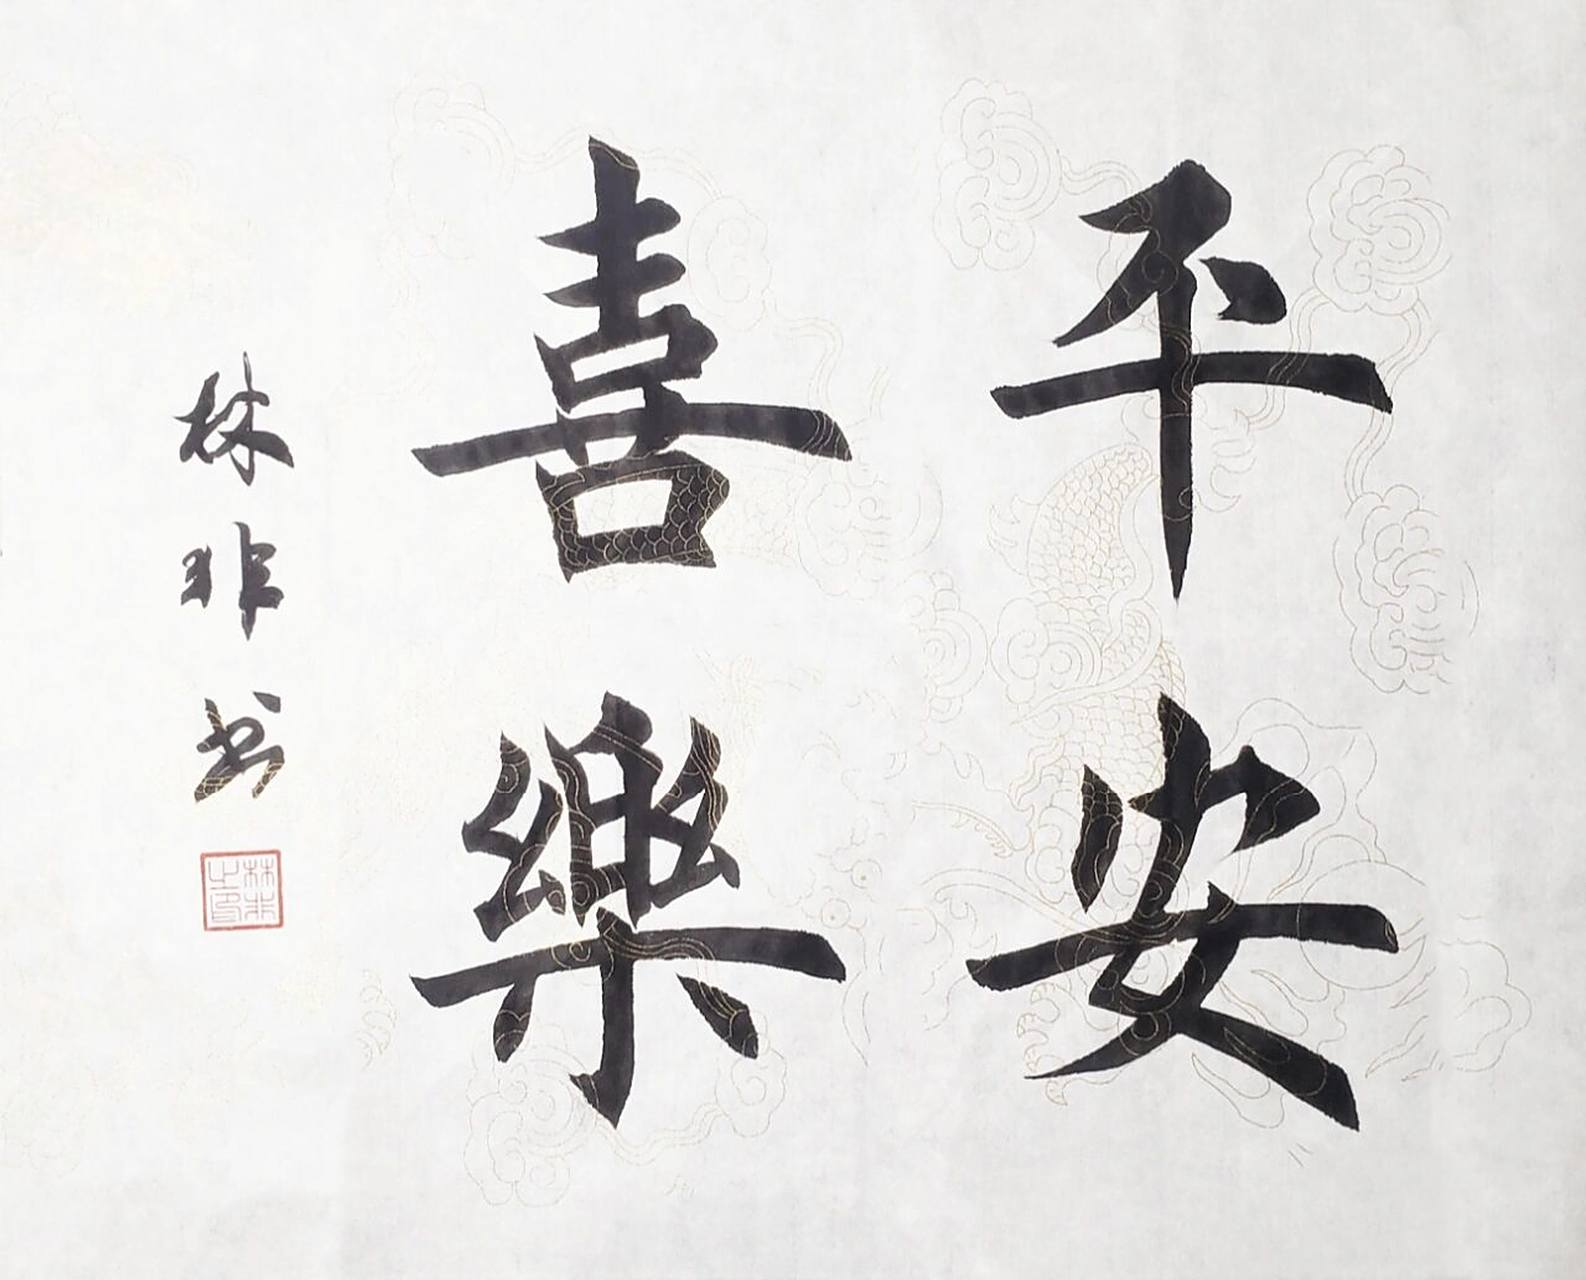 平安
喜樂
林非书
林非之印